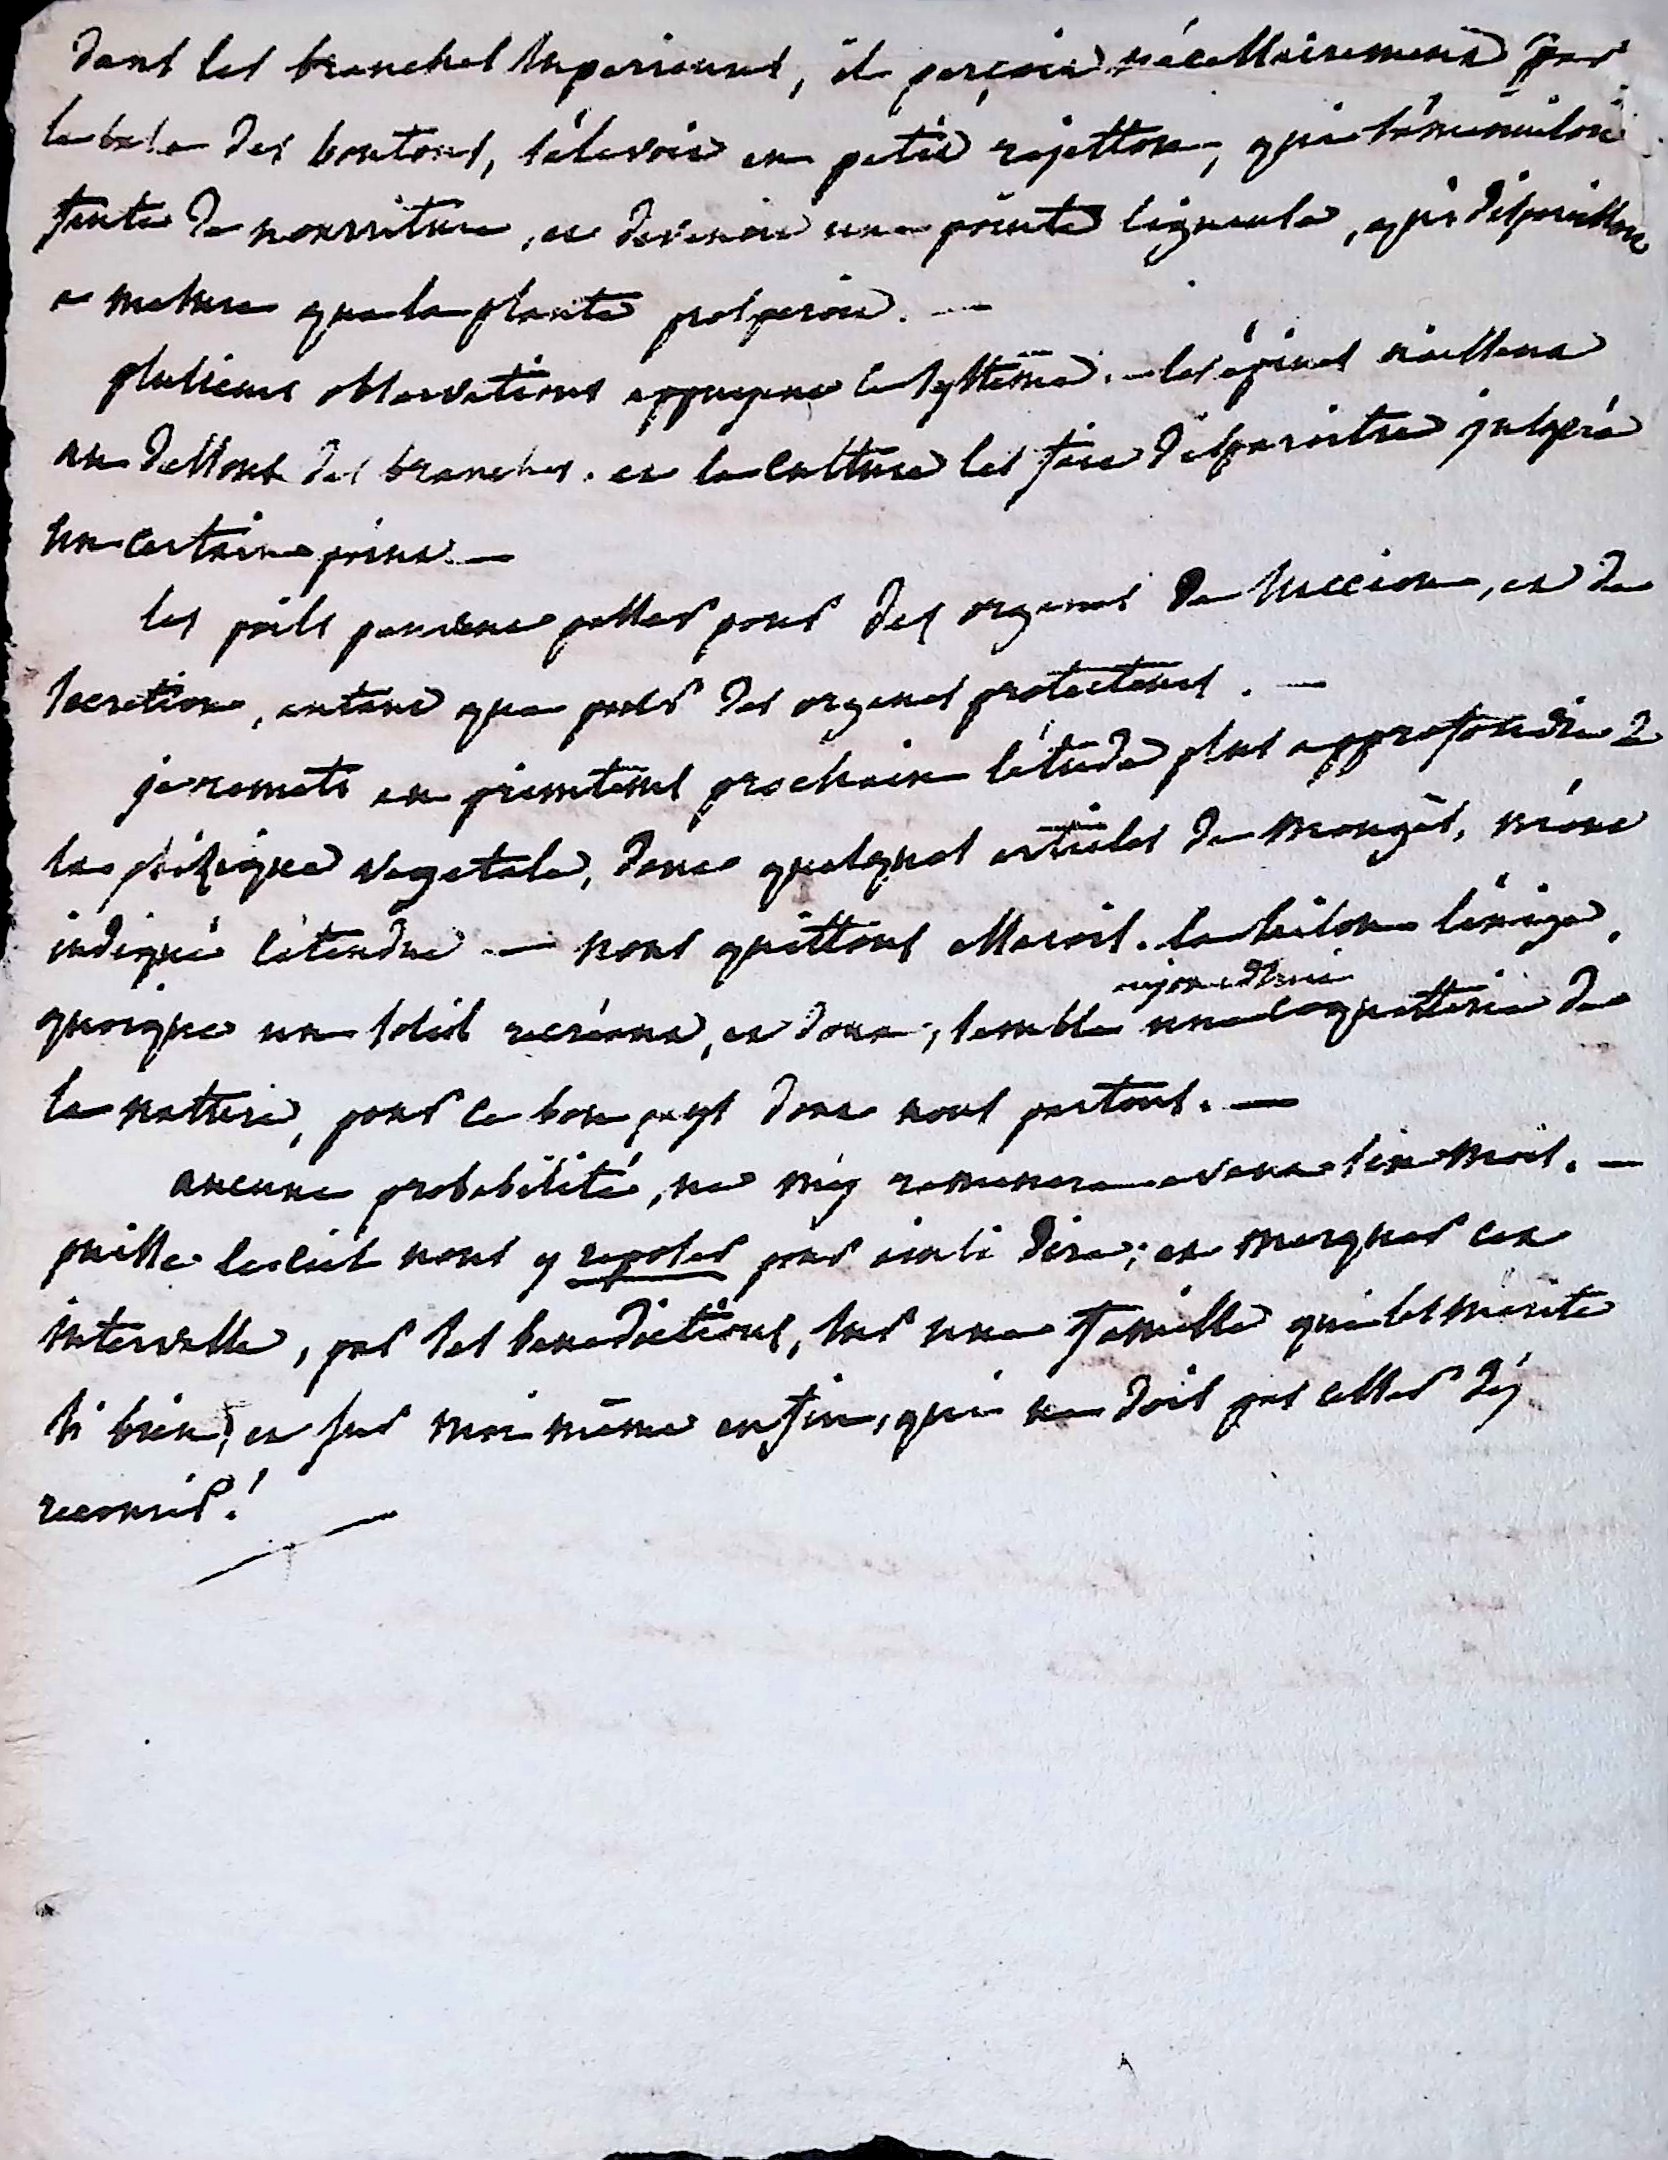 dans les branches superieures, il perçoit nécessairement par
la base des boutons, s'élevoit en petit rejetton, qui s'émousse
faute de nourriture, et devenoit une pointe ligneuse, qui disparoit
a mesure que la plante prosperoit. —
plusieurs observations appuyent ce systême. — les épines naissent
au dessous des branches. et la culture les fait disparoitre jusqu'à
un certain point. —
les poils peuvent passer pour des organes de succion, et de
secretion, autant que pour des organes protecteurs. —
je remets au printems prochain l'étude plus approfondie de
la phisique vegetale, dont quelques articles de mongès, m'ont
indiqué l'étendue — nous quittons essarois. la saison l'exige,
aujourd'hui
quoique un soleil recréant, et doux, semble une coquetterie de
la nature, pour ce bon pays dont nous partons. —
aucune probabilité, ne m'y ramenera avant six mois. —
puisse le ciel nous y reposer pour ainsi dire; et marquer cet
intervalle, par ses benedictions, sur une famille qui les merite
si bien; et sur moi même enfin, qui ne dois pas cesser d'y
recourir!